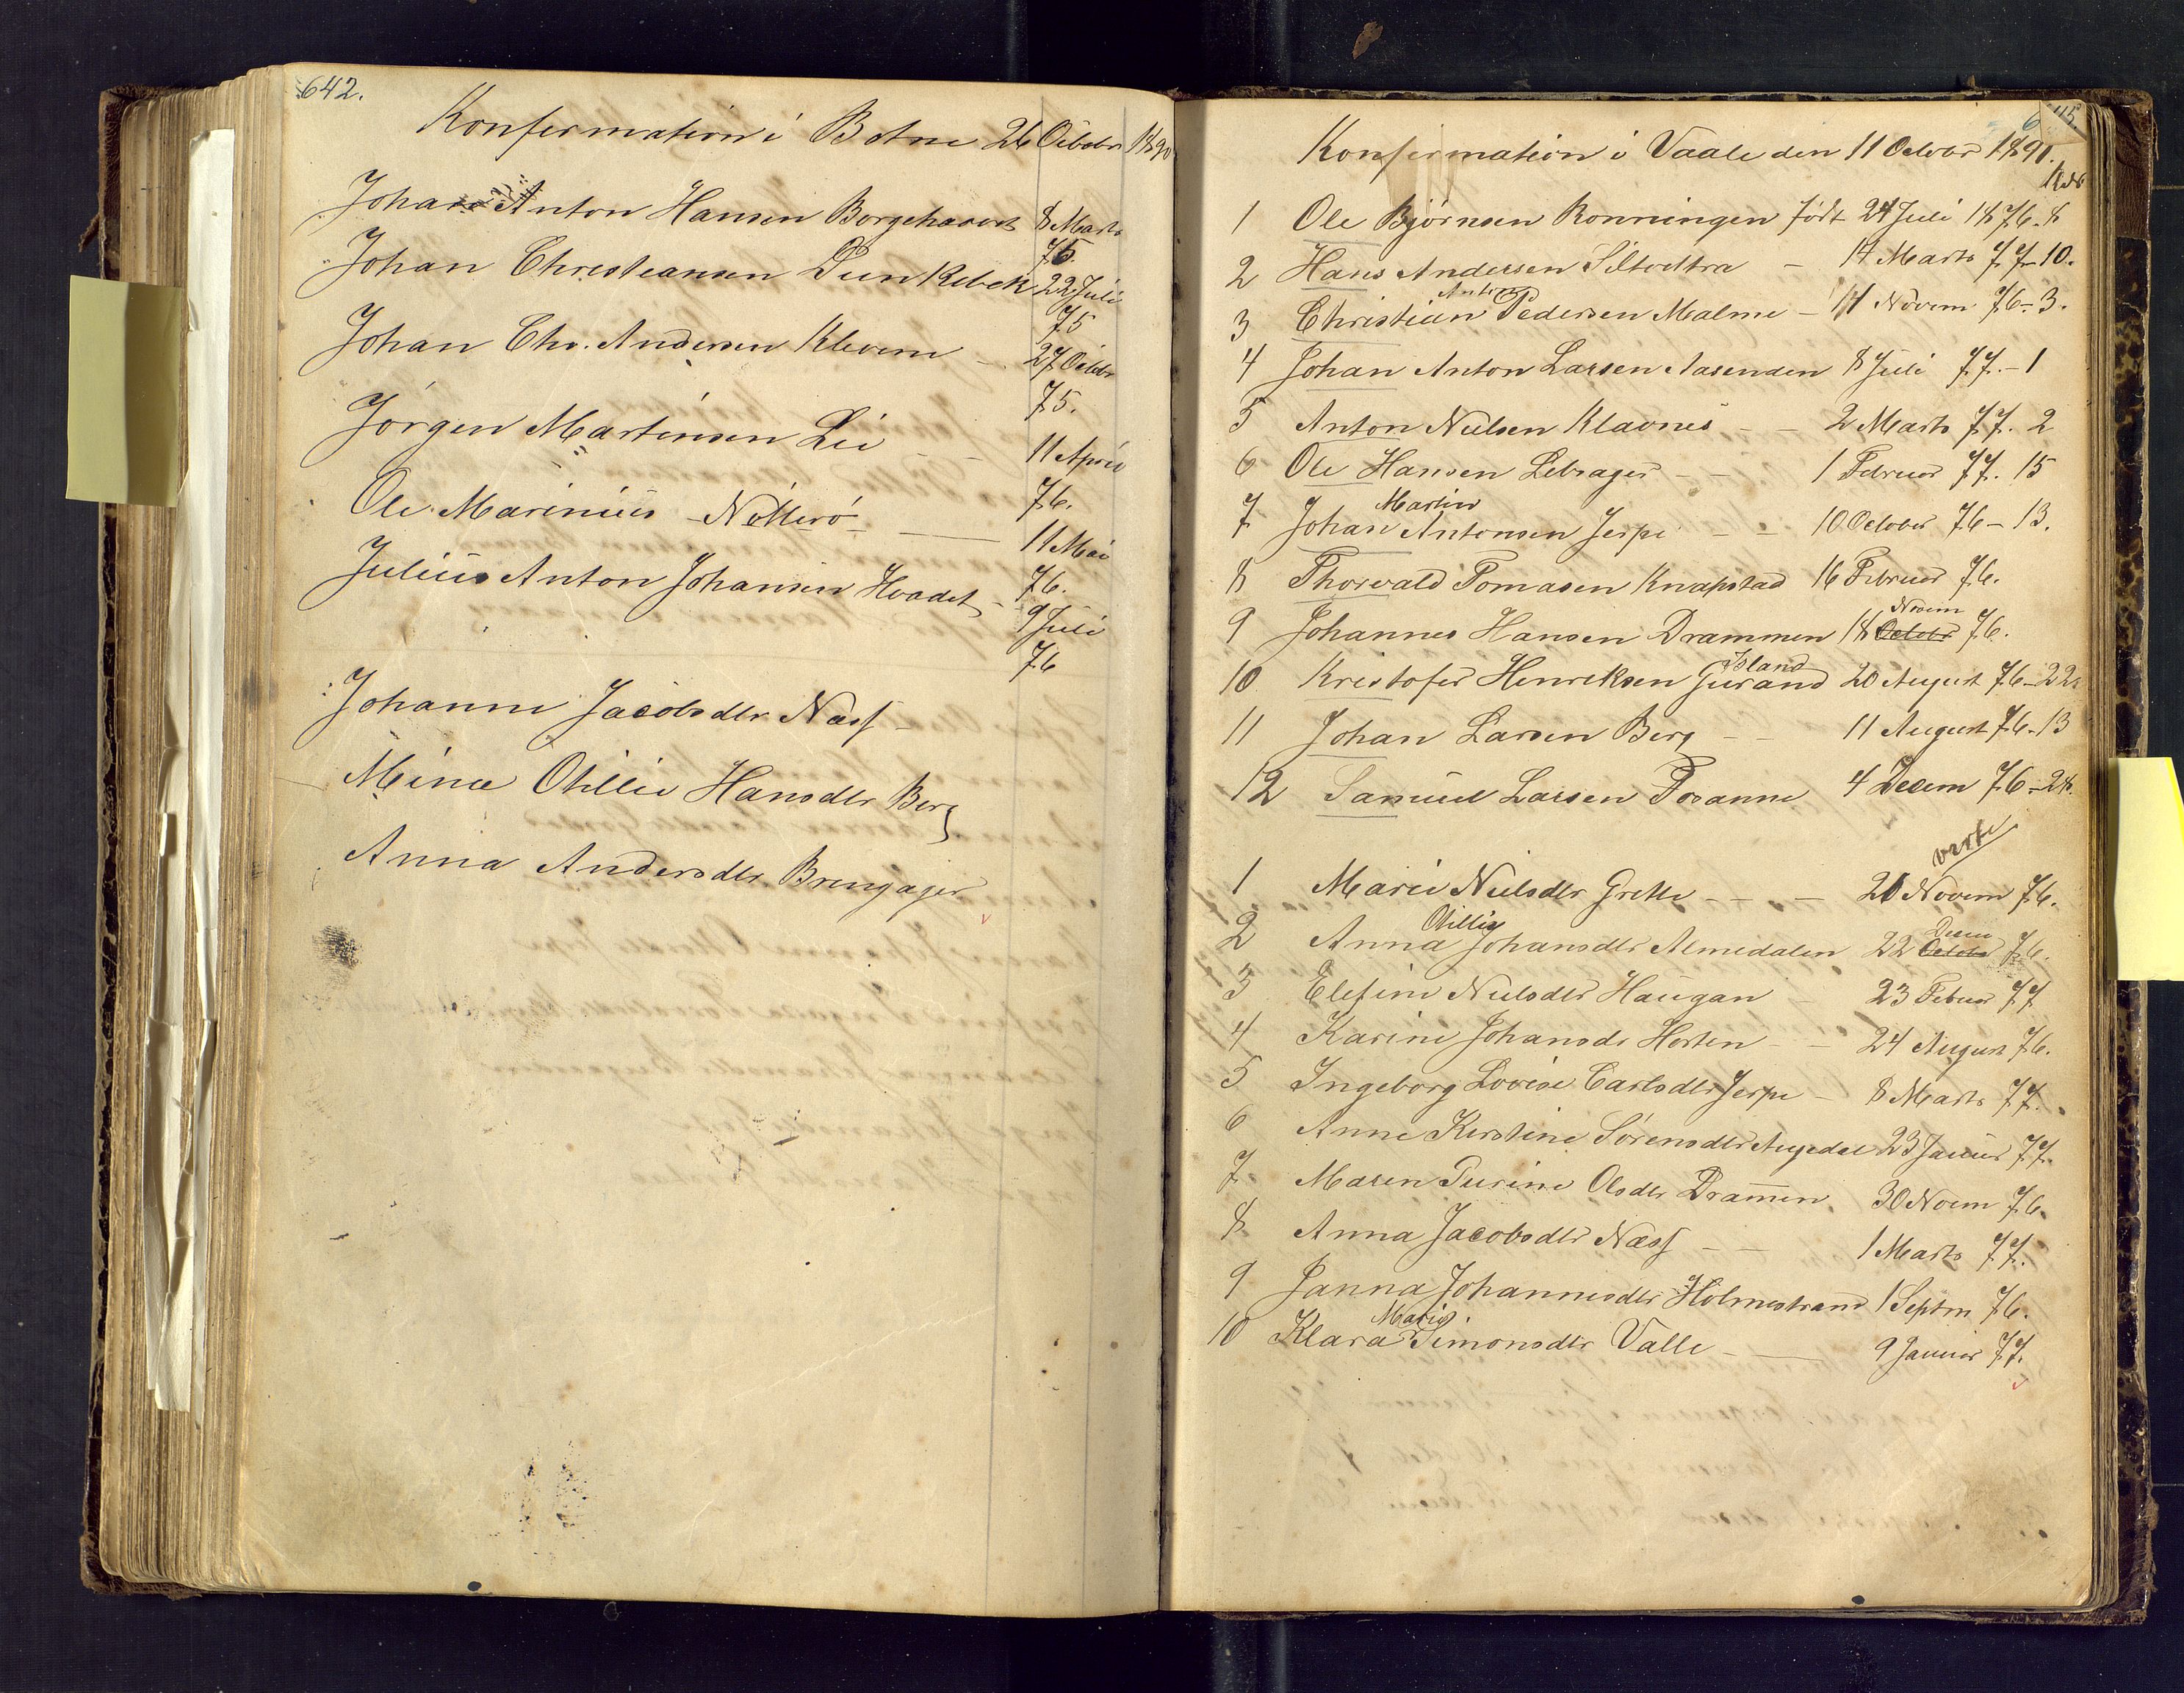 642.
Konfirmation i Botne 26 Octobr 1890
Johan Anton Hansen Borgehavet 8 Marts
75.
Johan Christiansen Dunkebek 22 Juli
75
Johan Chr. Andersen Klevem – 27 Octobr
75.
Jørgen Martinsen Lie - - 11 April
76.
Ole Marinius Nøtterø — 11 Mai
76.
Julius Anton Johansen Hvadet - 9 Juli
76
Johanne Jacobsdtr Næss
Mina Otillie Hansdtr Berg
Anna Andersdtr Brengager
6 45.
Konfirmation i Vaale den 11 Octobr 1891.
1 Ole Bjørnsen Ronningen født 24 Juli 1876. 8
2 Hans Andersen Siltvedtra – 17 Marts 77-10.
Anton
3 Christian Pedersen Malme – 11 Novem 76-3.
4 Johan Anton Larsen Aasenden 8 Juli 77.-1
5 Anton Nielsen Klavnes - - 2 Marts 77. 2
6 Ole Hansen Lebsager - - 1 Februar 77. 15
Martin
7 Johan Antonsen Jerpe - - 10 October 76-13.
8 Thorvald Tomasen Knapstad 16 Februar 76.
Novem
9 Johannes Hansen Drammen 18 Octobr 76.
Island
10 Kristofer Henriksen Gurand 20 August 76-22
11 Johan Larsen Berg - - 11 August 76-13
12 Samuel Larsen Foranne 4 Decem 76-28.
1 Marie Nielsdtr Grette - - - 20 Novem 76.
Otillie Decem
2 Anna Johansdtr Almedalen 22 Octobr 76.
3 Elefine Nielsdtr Haugan - 23 Febuar 77
4 Karine Johansdr Horten - - 24 August 76.
5 Ingeborg Lovise Carlsdtr Jerpe - 8 Marts 77.
6 Anne Kirstine Sørensdtr Augedal 23 Januar 77.
7 Maren Turine Olsdtr Dramen. 30 Novm 76.
8 Anna Jacobsdtr Næss - - 1 Marts 77.
9 Janna Johannesdtr Holmestrand 1 Septm 76.
Marie
10 Klara Simonsdtr Valle - — 9 Januar 77.